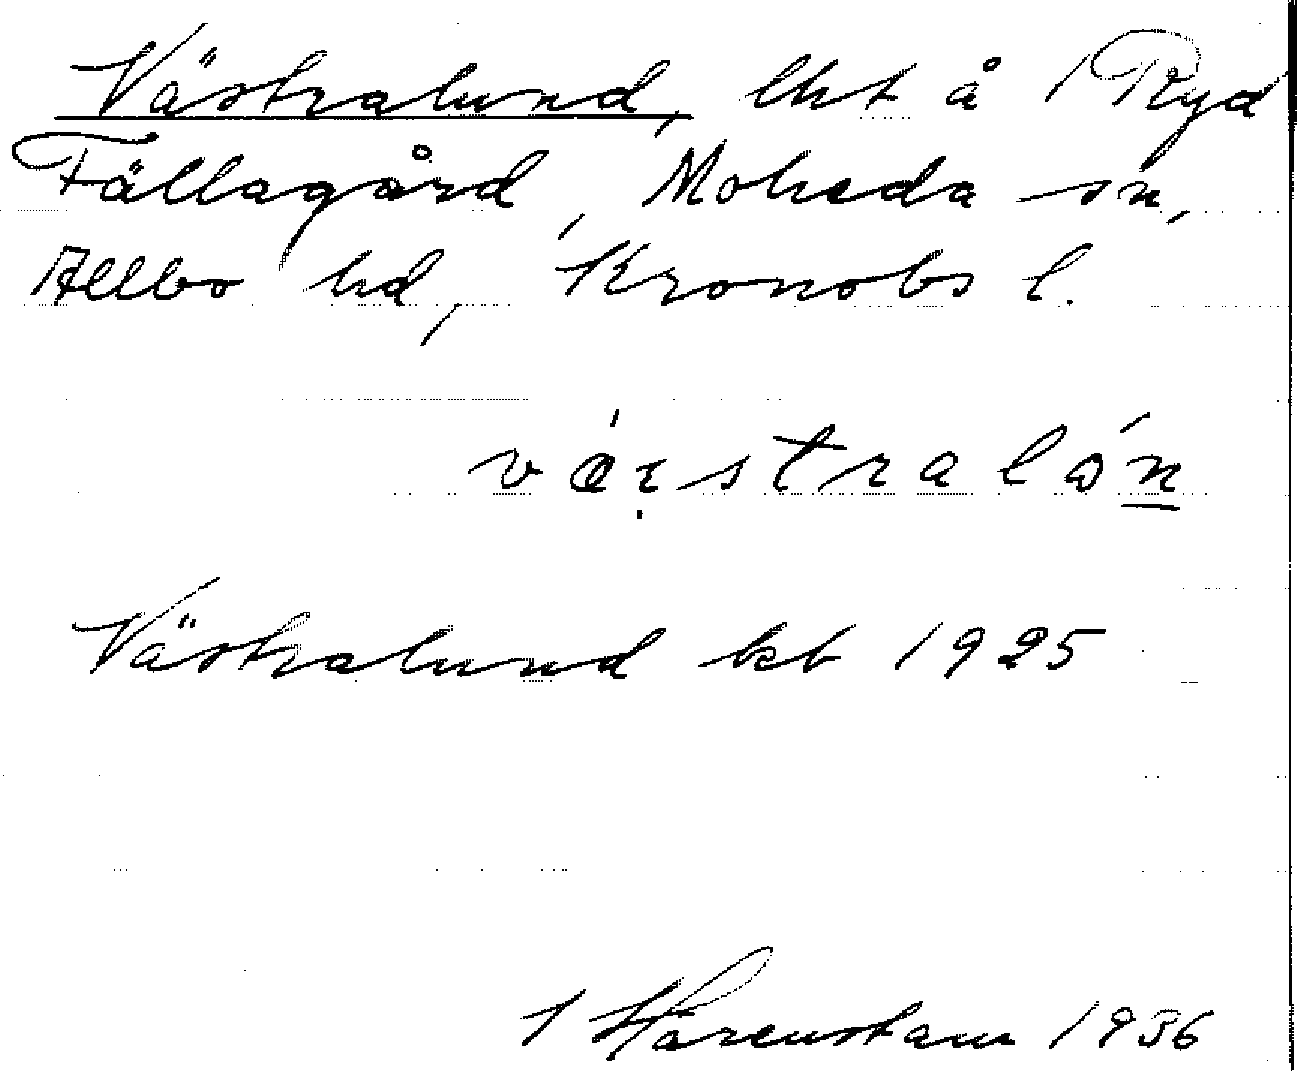 Västralund, lht å 1 Ryd
Fällagård, Moheda sn,
Allbo hd, Kronobs l.
Västralund kb 1925
Hårenstam 1936